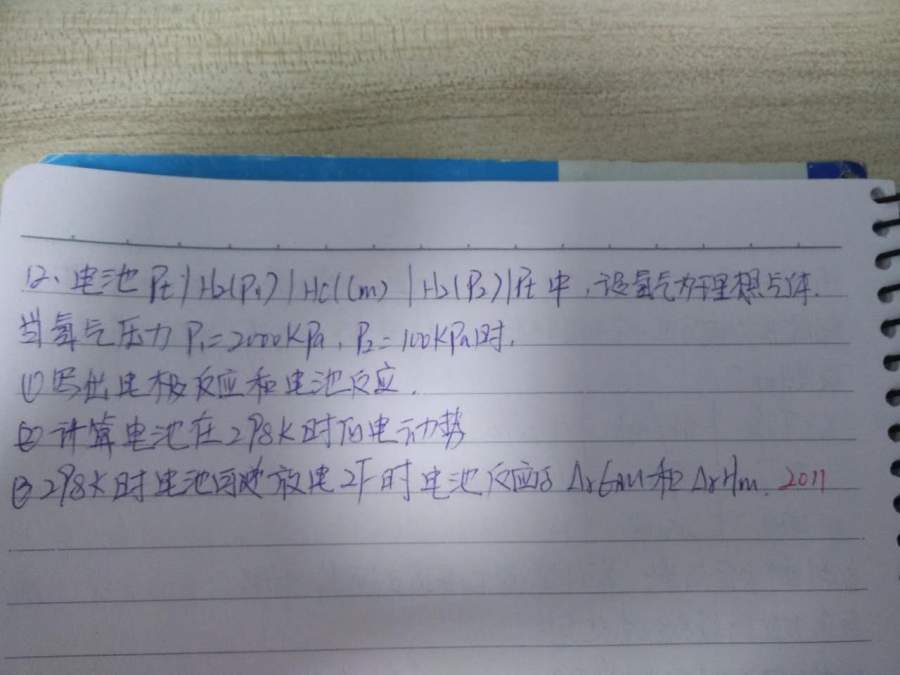 12、电池 Pt | H₂(P₁) | HCl(m) | H₂(P₂) | Pt 中,设氢气为理想气体.
当氢气压力 P₁=2000KPa,P₂=100KPa时,
(1)写出电极反应和电池反应.
(2)计算电池在298K时的电动势
(3)298K时电池可逆放电2F时电池反应的 ΔrGm和ΔrHm. 2011